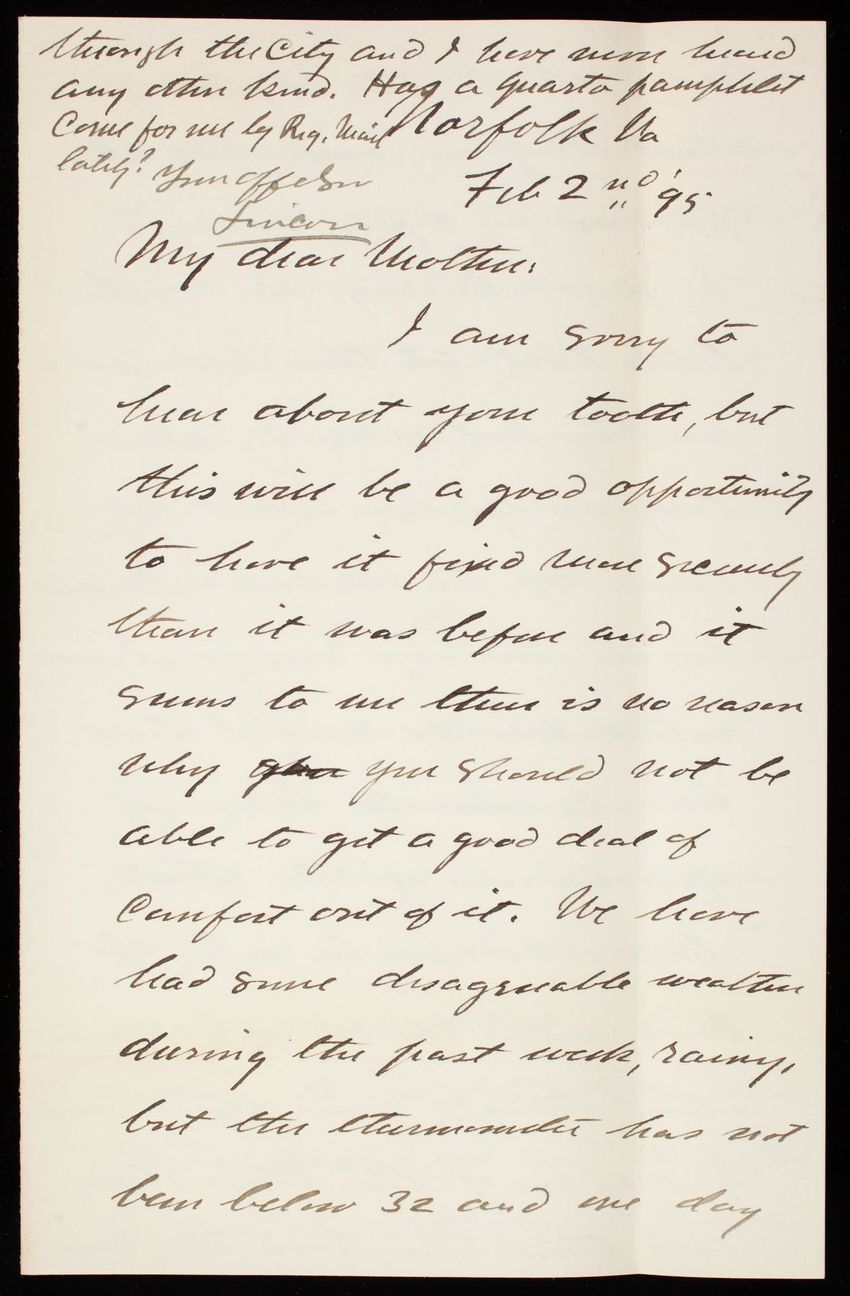 through the City and I have never heard
any other kind. Has a quarto pamphlet
Come for me by Reg. Mail
lately? Your aff. Son
Lincoln
Norfolk Va
Feb 2nd '95
My dear Mother:
I am sorry to
hear about your tooth, but
this will be a good opportunity
to have it fixed more securely
than it was before and it
seems to me there is no reason
why you should not be
able to get a good deal of
Comfort out of it. We have
had some disagreeable weather
during the past week, rainy,
but the thermometer has not
been below 32 and one day